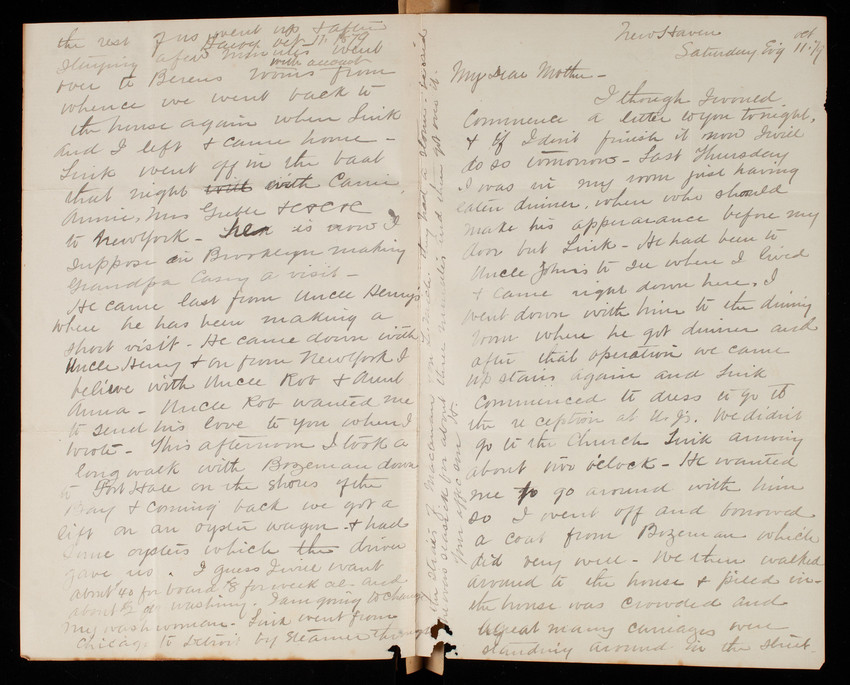 New Haven
Saturday Evg Oct 11. 79
My Dear Mother -
I though I would
commence a letter to you tonight,
& if I dont finish it now I will
do so tomorrow - Last Thursday
I was in my room just having
eaten dinner, when who should
make his appearance before my
door but Link - He had been to
Uncle Johns to see when I lived
& came right down here. I
went down with him to the dining
room where he got dinner and
after that operation we came
up stairs again and Link
commenced to dress to go to
the reception at U. J's. We didn't
go to the Church Link arriving
about two o'clock - He wanted
me to go around with him
so I went off and borrowed
a coat from Bozeman which
did very well - We then walked
around to the house & filed in -
the house was crowded and
a great many carriages were
standing around in the street -
the rest of us went up & after
Haven Oct 11. 1879
staying a few minutes went
with account
over to Berens rooms from
whence we went back to
the house again when Link
and I left & came home -
Link went off in the boat
that night with Carrie,
Annie, Mrs
to New York - He is now I
suppose in Brooklyn making
Grandpa Casey a visit -
He came last from Uncle Henry's
where he has been making a
short visit - He came down with
Uncle Henry & on from New York I
believe with Uncle Rob & Aunt
Anna - Uncle Rob wanted me
to send his love to you when I
wrote - This afternoon I took a
long walk with Bozeman down
to Fort Hale on the shores of the
Bay & coming back we got a
lift on an oyster wagon & had
some oysters which the driver
gave us. I guess I will want
about $40 for board $8 for week and
about $2 do washing. I am going to change
my wash woman - Link went from
Chicago to Detroit by steamer through
the Straits of Macanaw on L. Mich. they had a storm - he said
he was seasick for about three minutes and then got over it.
Your affec son